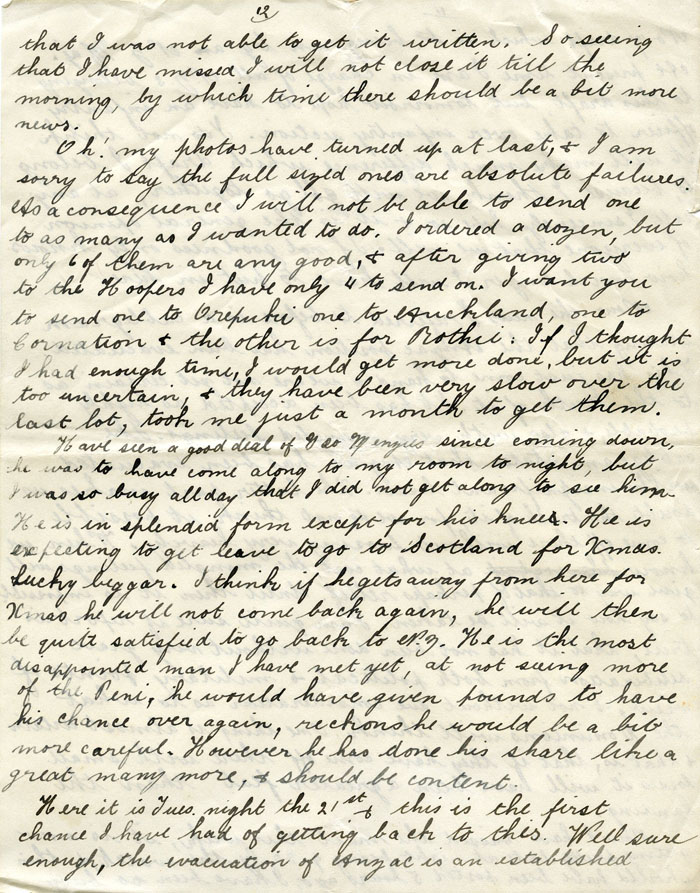 12
that I was not able to get it written. So seeing
that I have missed I will not close it till the
morning, by which time there should be a bit more
news.
Oh! my photos have turned up at last, & I am
sorry to say the full sized ones are absolute failures.
As a consequence I will not be able to send one
to as many as I wanted to do. I ordered a dozen, but
only 6 of them are any good, & after giving two
to the Hoopers I have only 4 to send on. I want you
to send one to Orepuki one to Auckland, one to
Cornation & the other is for Rothie. If I thought
I had enough time, I would get more done, but it is
too uncertain, & they have been very slow over the
last lot, took me just a month to get them.
Have seen a good deal of Menzies since coming down,
he was to have come along to my room to night, but
I was so busy all day that I did not get along to see him.
He is in splendid form except for his knees. He is
expecting to get leave to go to Scotland for Xmas.
Lucky beggar. I think if he gets away from here for
Xmas he will not come back again, he will then
be quite satisfied to go back to N.Z. He is the most
disappointed man I have met yet, at not seeing more
of the Peni, he would have given pounds to have
his chance over again, reckons he would be a bit
more careful. However he has done his share like a
great many more, & should be content.
Here it is Tues. night the 21st & this is the first
chance I have had of getting back to this. Well sure
enough, the evacuation of Anzac is an established